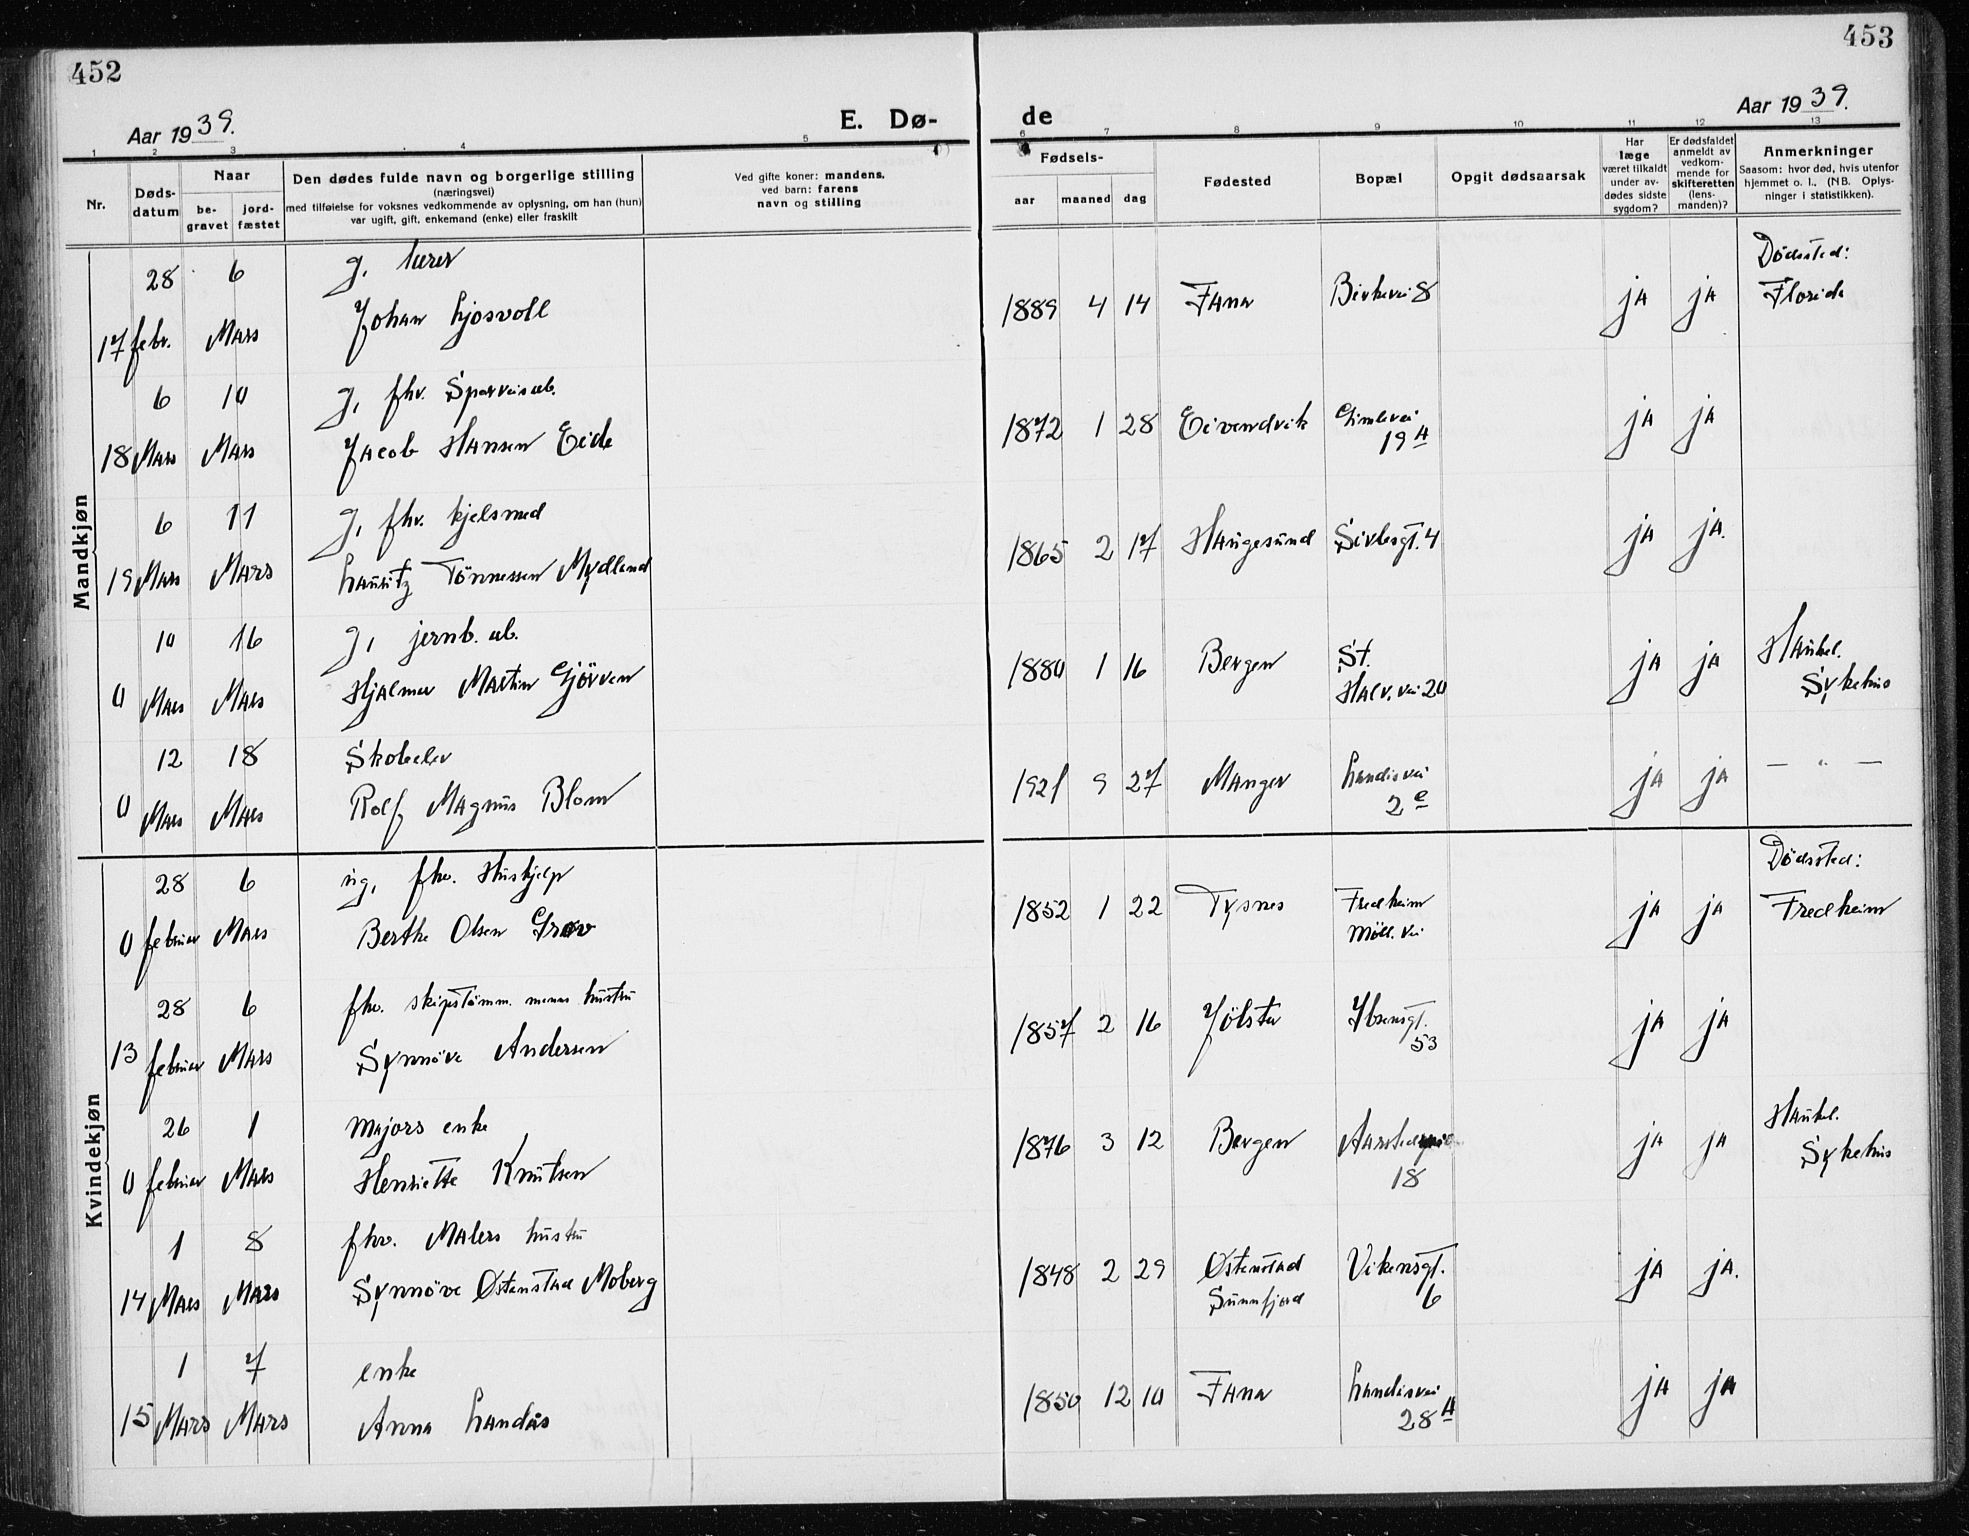 452
453
Aar 1939.
E. Dø-
de
Aar 1939.
1 2 3 4 5 6 7 8 9 10 11 12 13
Nr.
Døds-
datum
Naar
be-
gravet
jord-
fæstet
Den dødes fulde navn og borgerlige stilling
(næringsvei)
med tilføielse for voksnes vedkommende av oplysning, om han (hun)
var ugift, gift, enkemand (enke) eller fraskilt
Ved gifte koner: mandens.
ved barn: farens
navn og stilling
Fødsels-
aar maaned dag
Fødested
Bopæl
Opgit dødsaarsak
Har
læge
været tilkaldt
under av-
dødes sidste
sygdom?
Er dødsfaldet
anmeldt av
vedkom-
mende for
skifteretten
(lens-
manden)?
Anmerkninger
Saasom: hvor død, hvis utenfor
hjemmet o. l., (NB. Oplys-
ninger i statistikken).
Mandkjøn
28 6 g, lærer Dødssted:
17 febr. Mars Johan Ljosvoll 1889 4 14 Fana Birkevei 8 ja ja Florida
6 10 g, fhv. Sporveisarb.
18 Mars Mars Jacob Hansen Eide 1872 1 28 Eivendvik Gimlevei 19 A ja ja
6 11 g, fhv. kjelsmed
19 Mars Mars Lauritz Tönnessen Mydland 1865 2 17 Haugesund Sivlesgt. 4 ja ja.
10 16 g, jernb. arb.
0 Mars Mars Hjalmar Martin Gjörven 1880 1 16 Bergen St. Halv. vei 20 ja ja Haukel. Sykehus
12 18 Skoleelev
0 Mars Mars Rolf Magnus Blom 1921 9 27 Manger Landåsvei 2 e ja ja — " —
Kvindekjøn
28 6 ug, fhv. Hushjelp Dødssted:
0 februar Mars Berthe Olsen Grov 1852 1 22 Tysnes Fredheim Möll. vei ja ja Fredheim
28 6 fhv. skipstömm. manns hustru
13 februar Mars Synnöve Andersen 1857 2 16 Jölster Ibsensgt. 53 ja ja
26 1 Majors enke
0 februar Mars Henriette Knutsen 1876 3 12 Bergen 18 ja ja Haukel. Sykehus
1 8 fhv. Malers hustru
14 Mars Mars Synnöve Østenstad Moberg 1848 2 29 Østenstad Sunnfjord Vikensgt. 6 ja ja.
1 7 enke
15 Mars Mars Anna Landås 1850 12 10 Fana Landåsvei 28 A ja ja